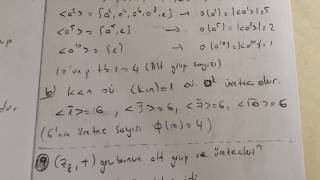 <a²> = {a², a⁴, a⁶, a⁸, e} → o(a²) = |<a²>| = 5
<a⁵> = {a⁵, e} → o(a⁵) = |<a⁵>| = 2
<a¹⁰> = {e} → o(a¹⁰) = |<a¹⁰>| = 1
10'un p.t.b.s = 4 (Alt grup sayısı)
b) k<n (k,n)=1 aᵏ üreteç olur.
<1> = G, <3> = G, <7> = G, <10> = G
(G'nin üreteç sayısı φ(10) = 4)
(Z₈, +) grubunun alt grup ve üreteçleri?